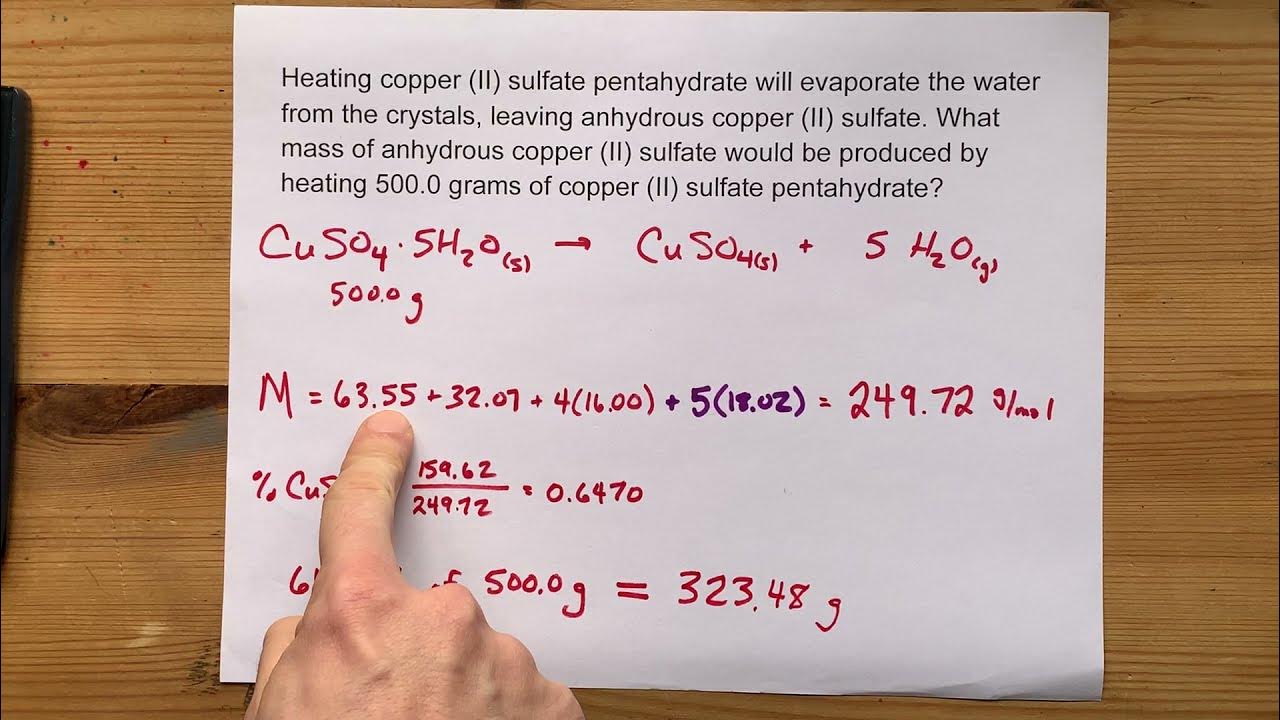 Heating copper (II) sulfate pentahydrate will evaporate the water
from the crystals, leaving anhydrous copper (II) sulfate. What
mass of anhydrous copper (II) sulfate would be produced by
heating 500.0 grams of copper (II) sulfate pentahydrate?
CuSO₄·5H₂O(s) → CuSO₄(s) + 5 H₂O(g)
500.0 g
M = 63.55 + 32.07 + 4(16.00) + 5(18.02) = 249.72 g/mol
% CuS 159.62/249.72 = 0.6470
6 of 500.0 g = 323.48 g